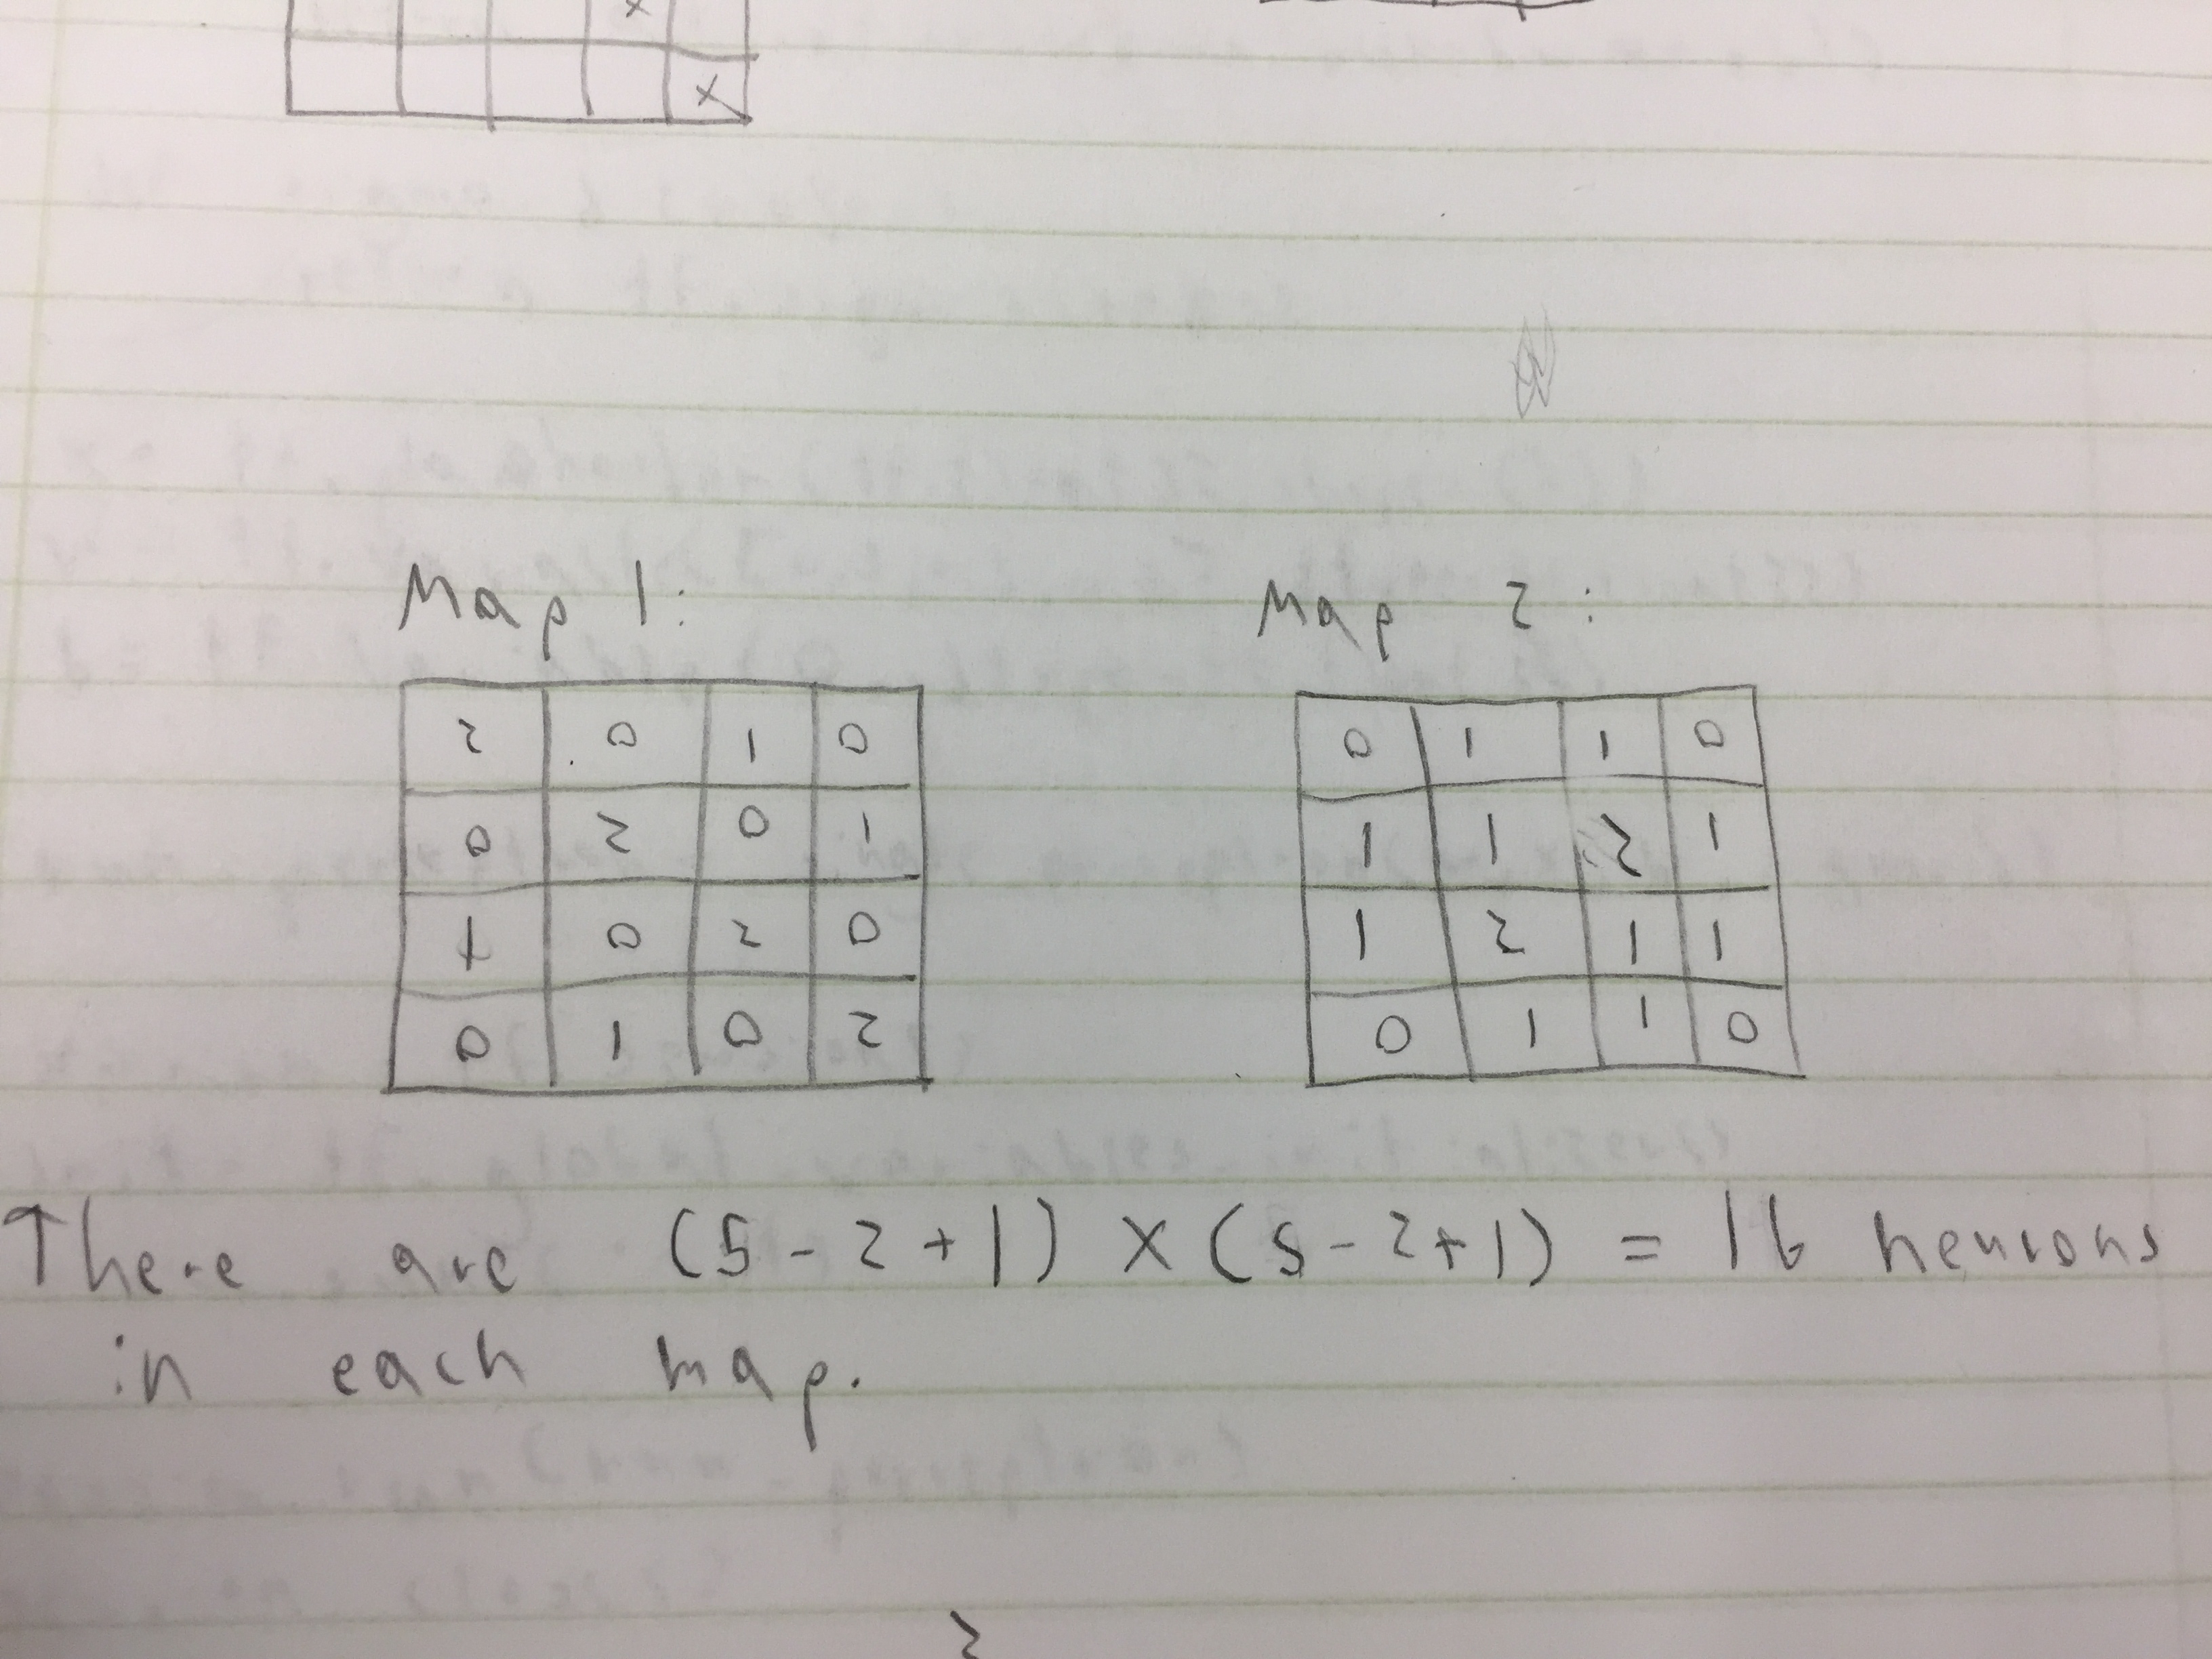 x
x
Map 1: Map 2:
2 0 1 0 0 1 1 0
0 2 0 1 1 1 2 1
1 0 2 0 1 2 1 1
0 1 0 2 0 1 1 0
There are (5-2+1) × (5-2+1) = 16 neurons
in each map.